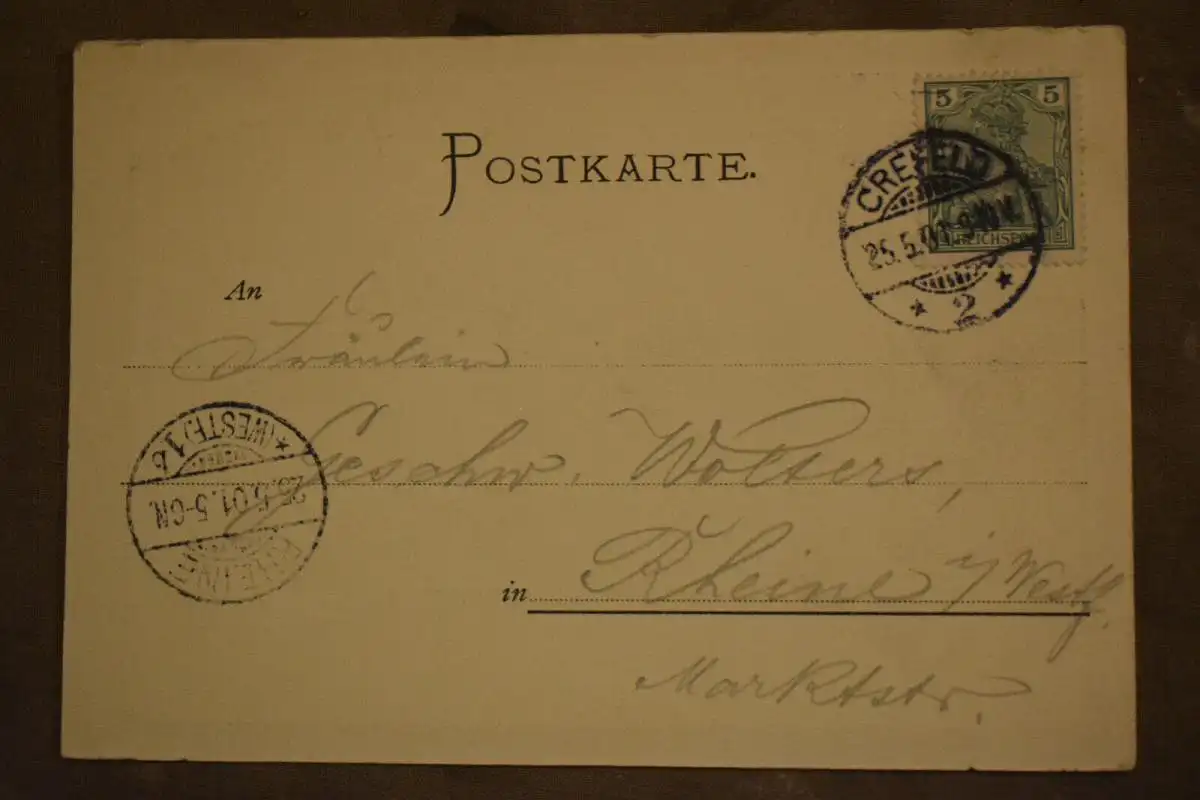 POSTKARTE.
5 5
REICHSPOST
CREFELD
25.5.01. 9-10V.
* 2 *
An
Fräulein
Geschw. Wolters,
in Rheine i/Westf.
Marktstr.
RHEINE
25.5.01.5-6N.
* (WESTF.) 1 b